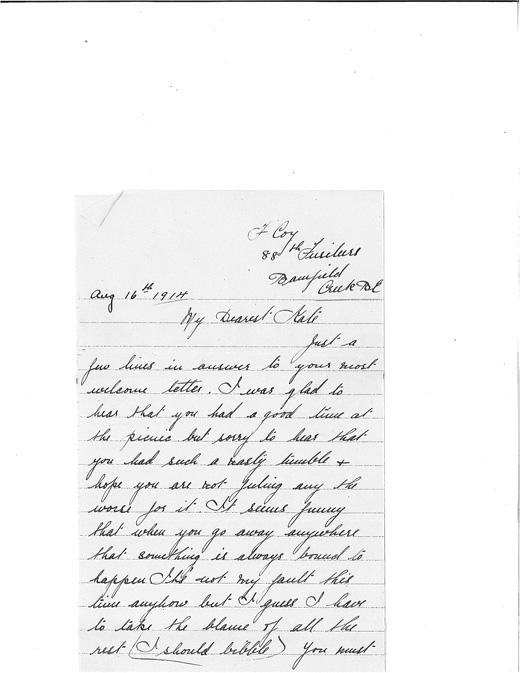 F Coy
88th Fusiliers
Bamfield
Creek BC
Aug 16th 1914
My Dearest Kate
Just a
few lines in answer to your most
welcome letter. I was glad to
hear that you had a good time at
the picnic but sorry to hear that
you had such a nasty tumble +
hope you are not feeling any the
worse for it. It seems funny
that when you go away anywhere
that something is always bound to
happen Its not my fault this
time anyhow but I guess I have
to take the blame of all the
rest (I should bibble) You must